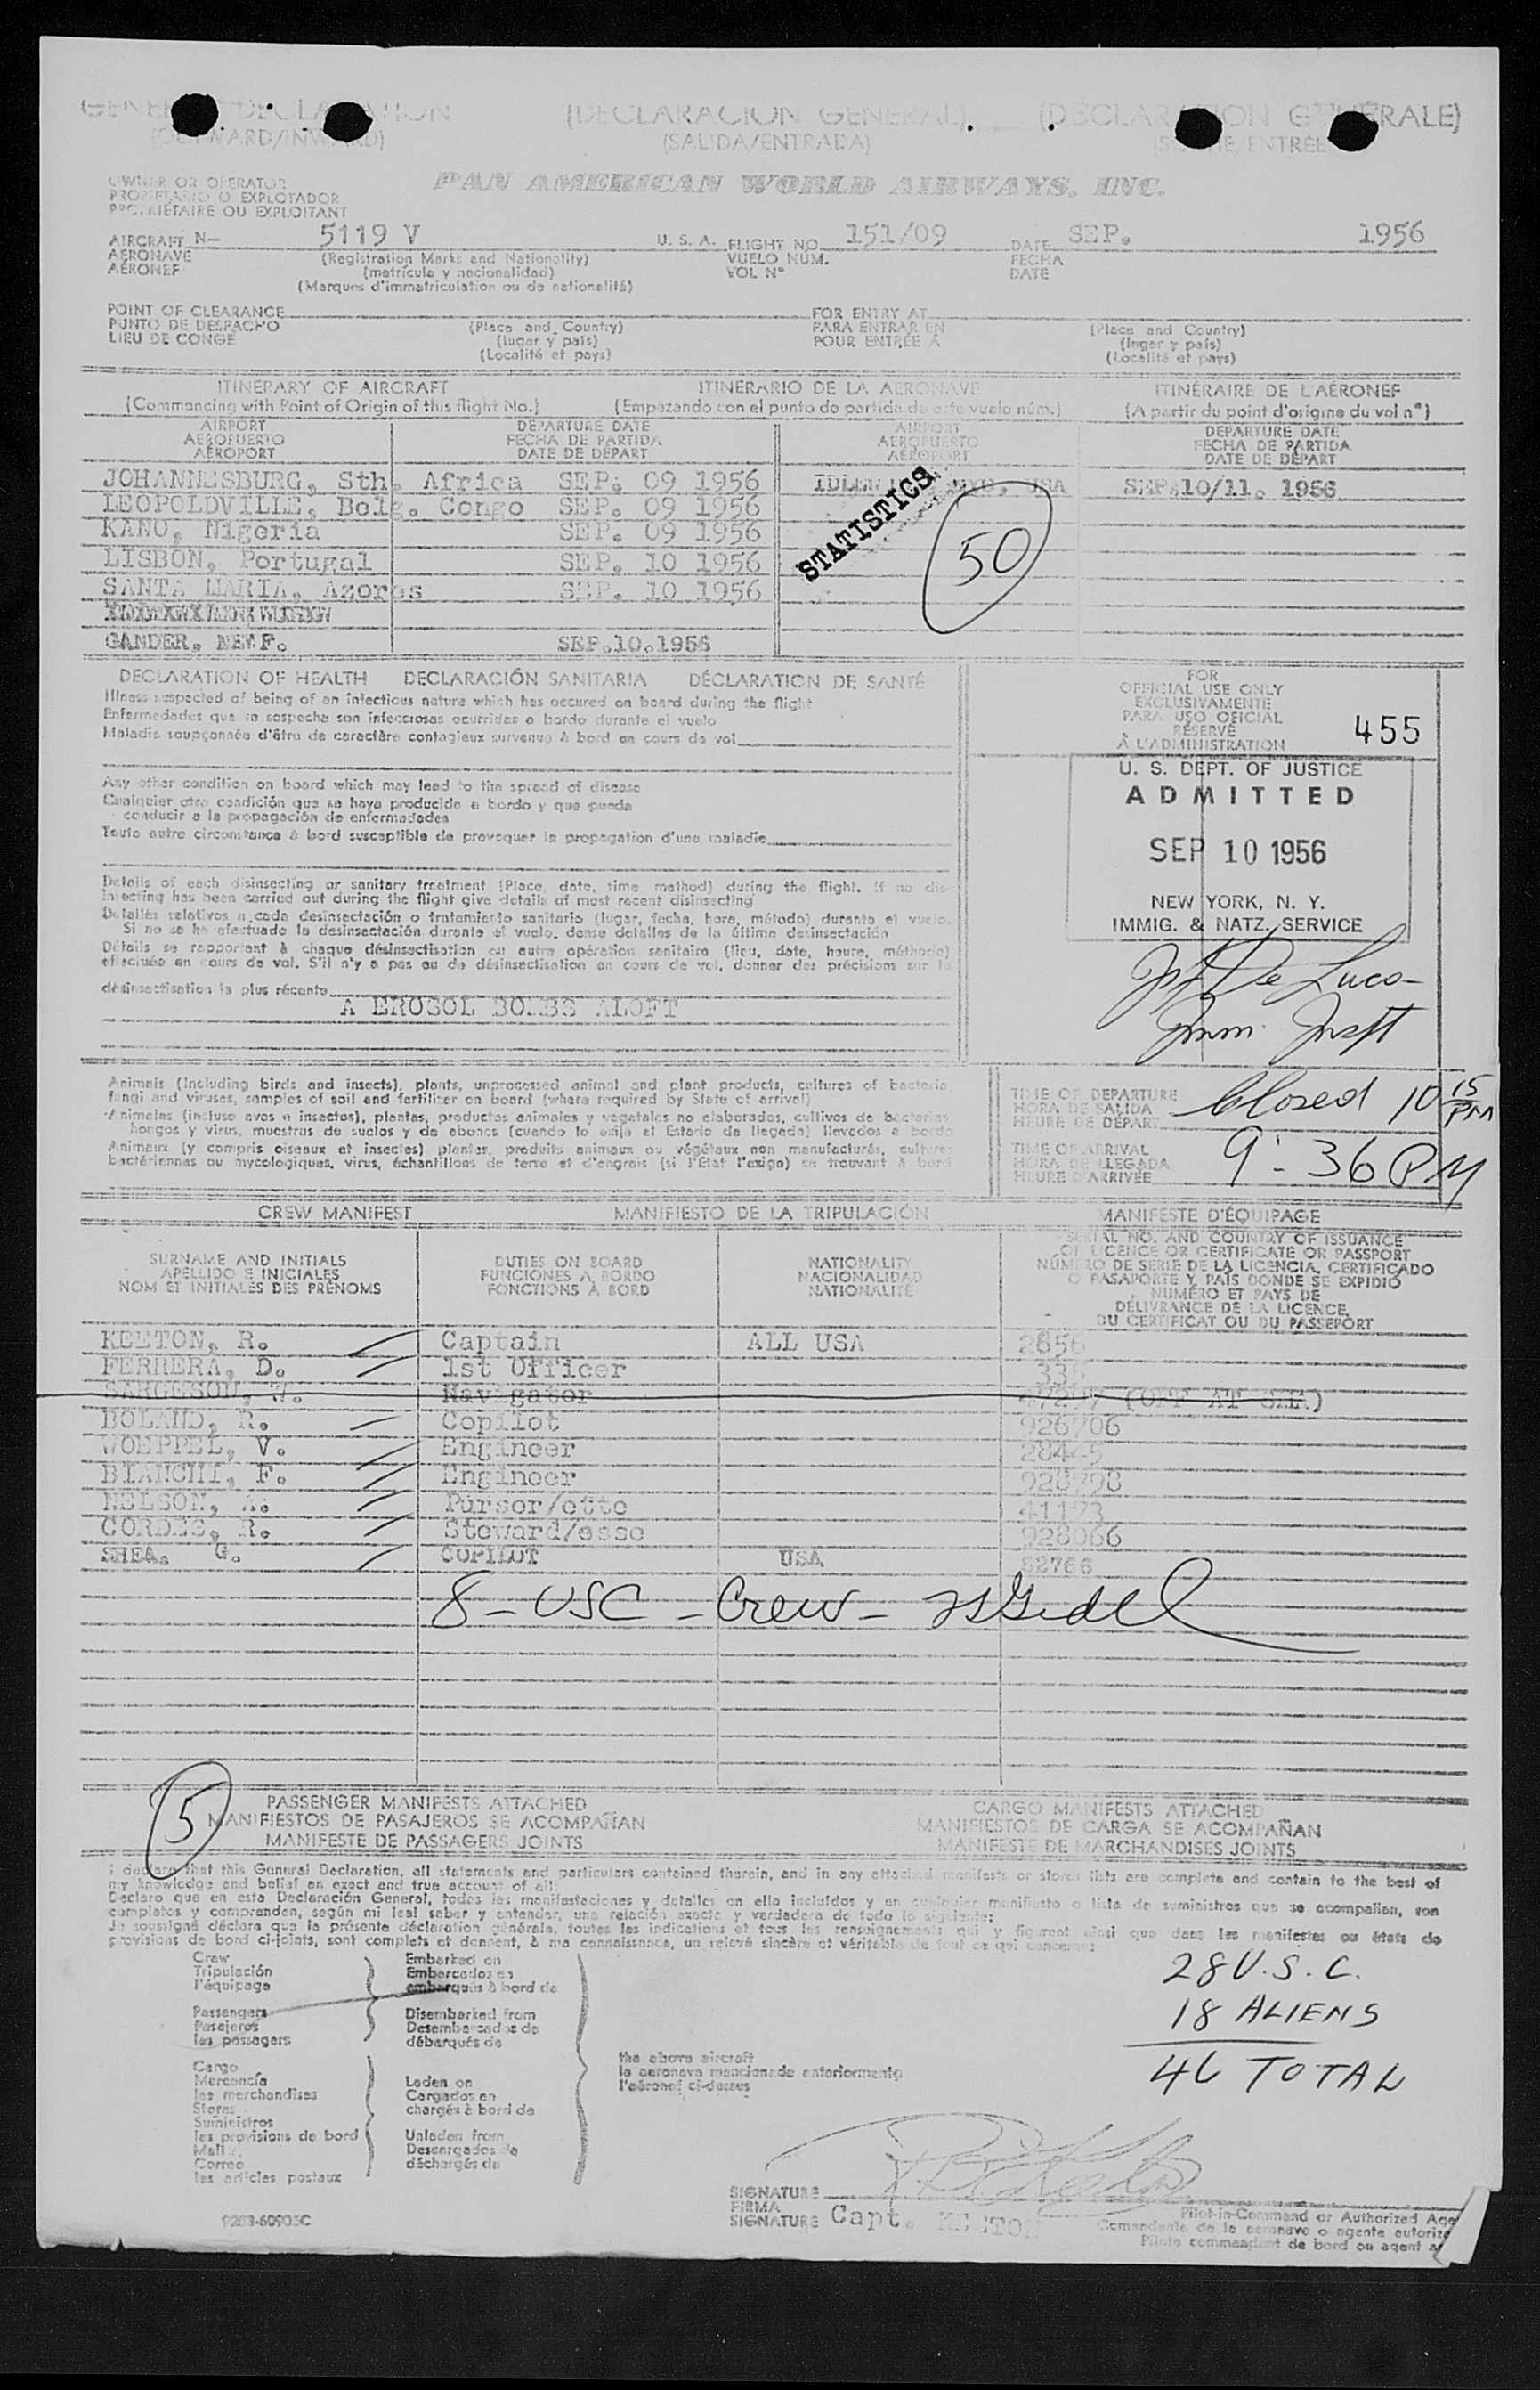 GENERAL DECLARATION (DECLARACION GENERAL) (DÉCLARATION GÉNÉRALE)
(OUTWARD/INWARD) (SALIDA/ENTRADA) (SORTIE/ENTRÉE)
OWNER OR OPERATOR
PROPIETARIO O EXPLOTADOR
PROPRIÉTAIRE OU EXPLOITANT
PAN AMERICAN WORLD AIRWAYS, INC.
AIRCRAFT N— 5119 V U. S. A. FLIGHT NO. 151/09 DATE SEP. 1956
AERONAVE (Registration Marks and Nationality) VUELO NÚM. FECHA
AÉRONEF (matrícula y nacionalidad) VOL N° DATE
(Marques d'immatriculation ou de nationalité)
POINT OF CLEARANCE FOR ENTRY AT
PUNTO DE DESPACHO (Place and Country) PARA ENTRAR EN (Place and Country)
LIEU DE CONGÉ (lugar y país) POUR ENTRÉE À (lugar y país)
(Localité et pays) (Localité et pays)
ITINERARY OF AIRCRAFT ITINERARIO DE LA AERONAVE ITINÉRAIRE DE L'AÉRONEF
(Commencing with Point of Origin of this flight No.) (Empezando con el punto de partida de este vuelo núm.) (A partir du point d'origine du vol n°)
AIRPORT DEPARTURE DATE AIRPORT DEPARTURE DATE
AEROPUERTO FECHA DE PARTIDA AEROPUERTO FECHA DE PARTIDA
AÉROPORT DATE DE DÉPART AÉROPORT DATE DE DÉPART
JOHANNESBURG, Sth. Africa SEP. 09 1956 SEP. 10/11. 1956
LEOPOLDVILLE, Belg. Congo SEP. 09 1956
KANO, Nigeria SEP. 09 1956
LISBON, Portugal SEP. 10 1956
SANTA MARIA, Azores SEP. 10 1956
GANDER, NEWF. SEP.10.1956
STATISTICS
50
DECLARATION OF HEALTH DECLARACIÓN SANITARIA DÉCLARATION DE SANTÉ
Illness suspected of being of an infectious nature which has occured on board during the flight
Enfermedades que se sospecha son infecciosas ocurridas a bordo durante el vuelo
Maladie soupçonnée d'être de caractère contagieux survenue à bord en cours de vol
Any other condition on board which may lead to the spread of disease
Cualquier otra condición que se haya producido a bordo y que pueda
conducir a la propagación de enfermedades
Toute autre circonstance à bord susceptible de provoquer la propagation d'une maladie
Details of each disinsecting or sanitary treatment (Place, date, time, method) during the flight. If no dis-
insecting has been carried out during the flight give details of most recent disinsecting
Detalles relativos a cada desinsectación o tratamiento sanitario (lugar, fecha, hora, método) durante el vuelo.
Si no se ha efectuado la desinsectación durante el vuelo, dense detalles de la última desinsectación
Détails se rapportant à chaque désinsectisation ou autre opération sanitaire (lieu, date, heure, méthode)
effectuée en cours de vol. S'il n'y a pas eu de désinsectisation en cours de vol, donner des précisions sur la
désinsectisation la plus récente
A EROSOL BOMBS ALOFT
FOR
OFFICIAL USE ONLY
EXCLUSIVAMENTE
PARA USO OFICIAL
RÉSERVÉ
À L'ADMINISTRATION
455
U. S. DEPT. OF JUSTICE
ADMITTED
SEP 10 1956
NEW YORK, N. Y.
IMMIG. & NATZ. SERVICE
De Luco
Imm. Inspt
Animals (including birds and insects), plants, unprocessed animal and plant products, cultures of bacteria,
fungi and viruses, samples of soil and fertilizer on board (where required by State of arrival)
Animales (incluso aves e insectos), plantas, productos animales y vegetales no elaborados, cultivos de bacterias,
hongos y virus, muestras de suelos y de abonos (cuando lo exija el Estado de llegada) llevados a bordo
Animaux (y compris oiseaux et insectes) plantes, produits animaux ou végétaux non manufacturés, cultures
bactériennes ou mycologiques, virus, échantillons de terre et d'engrais (si l'État l'exige) se trouvant à bord
TIME OF DEPARTURE
HORA DE SALIDA
HEURE DE DÉPART
Closed 10 15 PM
TIME OF ARRIVAL
HORA DE LLEGADA
HEURE D'ARRIVÉE
9:36 PM
CREW MANIFEST MANIFIESTO DE LA TRIPULACIÓN MANIFESTE D'ÉQUIPAGE
SURNAME AND INITIALS
APELLIDO E INICIALES
NOM ET INITIALES DES PRÉNOMS
DUTIES ON BOARD
FUNCIONES A BORDO
FONCTIONS À BORD
NATIONALITY
NACIONALIDAD
NATIONALITÉ
SERIAL NO. AND COUNTRY OF ISSUANCE
OF LICENCE OR CERTIFICATE OR PASSPORT
NÚMERO DE SERIE DE LA LICENCIA, CERTIFICADO
O PASAPORTE Y PAÍS DONDE SE EXPIDIÓ
NUMÉRO ET PAYS DE
DÉLIVRANCE DE LA LICENCE,
DU CERTIFICAT OU DU PASSEPORT
KEETON, R. Captain ALL USA 2856
FERRERA, D. 1st Officer
SARGESON, W. Navigator
BOLAND, R. Copilot 926706
WOEPPEL, V. Engineer
BIANCHI, F. Engineer 928798
NELSON, Purser/ette
CORDES, R. Steward/esse 928066
SHEA, G. COPILOT USA 82766
8 - USC - Crew -
5
PASSENGER MANIFESTS ATTACHED CARGO MANIFESTS ATTACHED
MANIFIESTOS DE PASAJEROS SE ACOMPAÑAN MANIFIESTOS DE CARGA SE ACOMPAÑAN
MANIFESTE DE PASSAGERS JOINTS MANIFESTE DE MARCHANDISES JOINTS
I declare that this General Declaration, all statements and particulars contained therein, and in any attached manifests or stores lists are complete and contain to the best of
my knowledge and belief an exact and true account of all:
Declaro que en esta Declaración General, todas las manifestaciones y detalles en ella incluídos y en cualquier manifiesto o lista de suministros que se acompañan, son
completos y comprenden, según mi leal saber y entender, una relación exacta y verdadera de todo lo siguiente:
Je soussigné déclare que la présente déclaration générale, toutes les indications et tous les renseignements qui y figurent ainsi que dans les manifestes ou états de
provisions de bord ci-joints, sont complets et donnent, à ma connaissance, un relevé sincère et véritable de tout ce qui concerne:
Crew Embarked on
Tripulación Embarcados en
l'équipage embarqués à bord de
Passengers Disembarked from
Pasajeros Desembarcados de
les passagers débarqués de
Cargo
Mercancía Laden on
les merchandises Cargados en
Stores chargés à bord de
Suministros
les provisions de bord Unladen from
Mail Descargados de
Correo déchargés de
les articles postaux
the above aircraft
la aeronave mencionada anteriormente
l'aéronef ci-dessus
28 U.S.C.
18 ALIENS
46 TOTAL
SIGNATURE
FIRMA
SIGNATURE Capt. KEETON
Pilot-in-Command or Authorized Age
Comandante de la aeronave o agente autoriza
Pilote commandant de bord ou agent